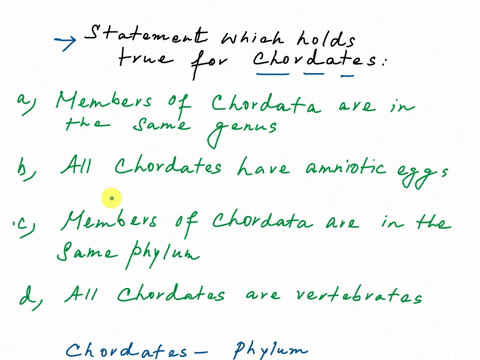 → Statement which holds
true for Chordates:
a) Members of Chordata are in
the same genus
b) All Chordates have amniotic eggs
c) Members of Chordata are in the
same phylum
d) All Chordates are vertebrates
Chordates - Phylum